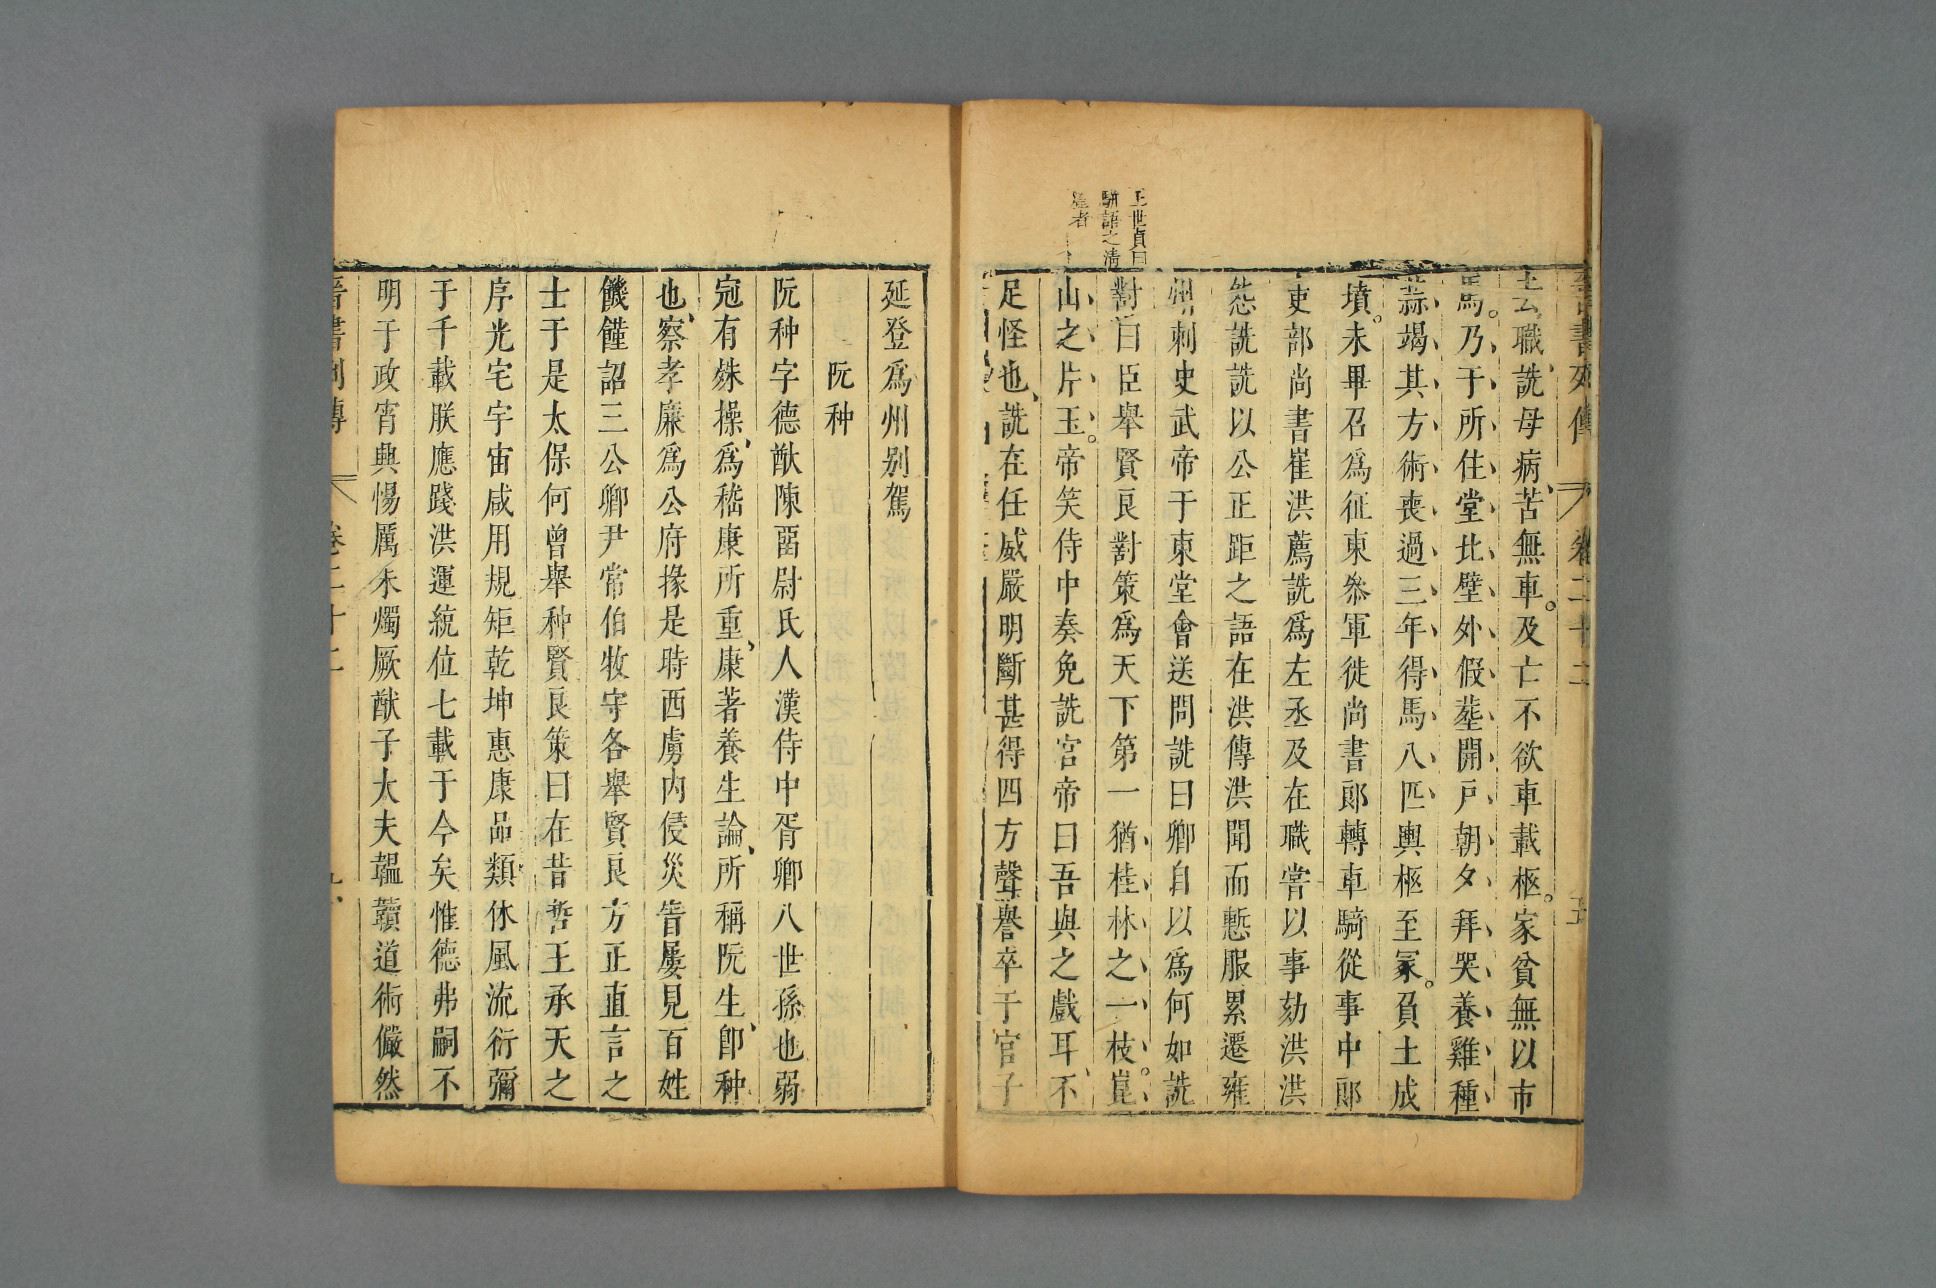 王世貞曰
駢語之清
達者
去職詵母病苦無車及亡不欲車載柩家貧無以市
馬乃于所住堂北壁外假塟開戶朝夕拜哭養雞種
蒜竭其方術喪過三年得馬八匹輿柩至冢負土成
墳未畢召爲征東叅軍徙尚書郎轉車騎從事中郎
吏部尚書崔洪薦詵爲左丞及在職嘗以事劾洪洪
怨詵詵以公正距之語在洪傳洪聞而慙服累遷雍
州刺史武帝于東堂會送問詵曰卿自以爲何如詵
對曰臣舉賢良對策爲天下第一猶桂林之一枝崑
山之片玉帝笑侍中奏免詵官帝曰吾與之戲耳不
足怪也詵在任威嚴明斷甚得四方聲譽卒于官子
延登爲州别駕
阮种
阮种字德猷陳留尉氏人漢侍中胥卿八世孫也弱
冠有殊操爲嵇康所重康著養生論所稱阮生卽种
也察孝廉爲公府掾是時西虜内侵災眚屢見百姓
饑饉詔三公卿尹常伯牧守各舉賢良方正直言之
士于是太保何曾舉种賢良策曰在昔哲王承天之
序光宅宇宙咸用規矩乾坤惠康品類休風流衍彌
于千載朕應踐洪運統位七載于今矣惟德弗嗣不
明于政宵興惕厲未燭厥猷子大夫韞韥道術儼然
晋書列傳 卷二十二